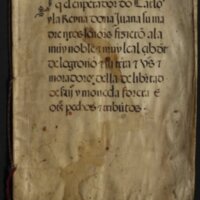 q el enperador do Carlo
y la Reyna doña Juana su ma
dre nros señores hizierō a la
muy noble & muy leal cibdad
de logroño & su trra & vs &
moradores della de libertad
de & moneda forera &
otros pechos & tributos.